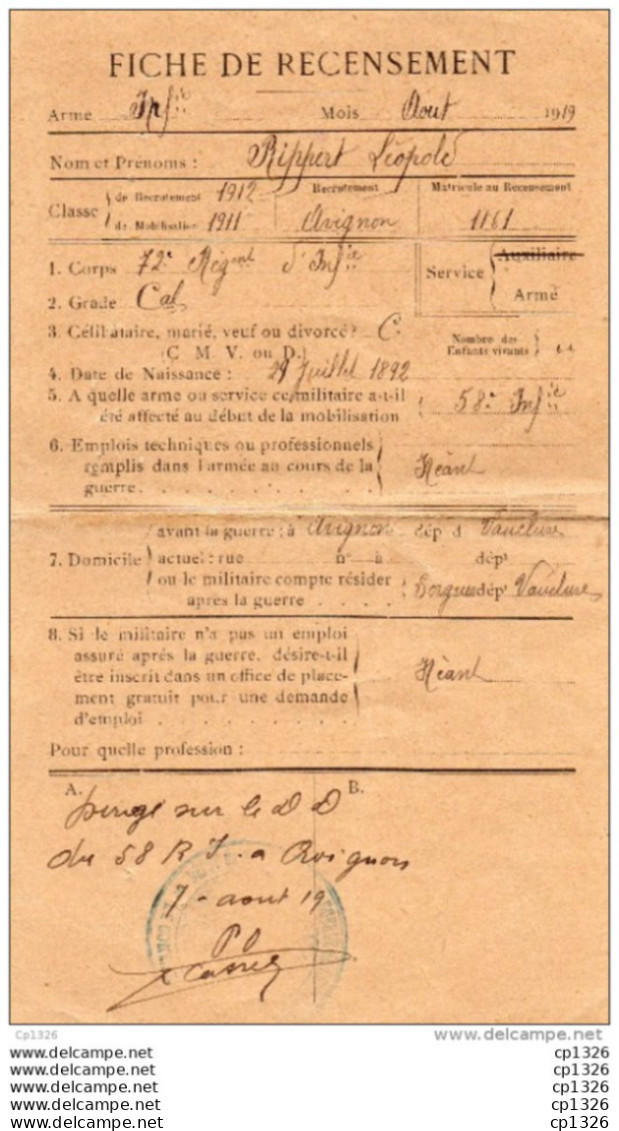 FICHE DE RECENSEMENT
Arme Inf.ie Mois Aout 1919
Nom et Prénoms : Rippert Léopold
Classe de Recrutement 1912 Recrutement Matricule au Recensement
de Mobilisation 1911 Avignon 1161
1. Corps 72e Régent d'Infie Service Auxiliaire
Armé
2. Grade Cal
3. Célibataire, marié, veuf ou divorcé? C. Nombre des
(C. M. V. ou D.) Enfants vivants
4. Date de Naissance : 29 Juillet 1892
5. A quelle arme ou service ce militaire a-t-il
été affecté au début de la mobilisation 58e Infie
6. Emplois techniques ou professionnels
remplis dans l'armée au cours de la Néant
guerre
avant la guerre : à Avignon dép d Vaucluse
7. Domicile actuel : rue n° à dépt
ou le militaire compte résider Sorgues dépt Vaucluse
après la guerre
8. Si le militaire n'a pas un emploi
assuré après la guerre, désire-t-il
être inscrit dans un office de place- Néant
ment gratuit pour une demande
d'emploi
Pour quelle profession :
A. B.
sur le D D
du 58 R I. a Avignon
7 - aout 19
PO
Cp1326 www.delcampe.net
www.delcampe.net cp1326
www.delcampe.net cp1326
www.delcampe.net cp1326
www.delcampe.net cp1326
www.delcampe.net cp1326